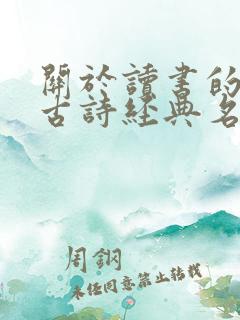 關於讀書的
古詩經典名
周鋼
未經同意禁止轉載